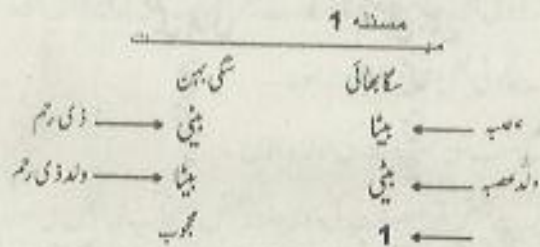 مسئلہ 1
سگا بھائی سگی بہن
عصبہ بیٹا بیٹی ذی رحم
ولد عصبہ بیٹی بیٹا ولد ذی رحم
1 محجوب